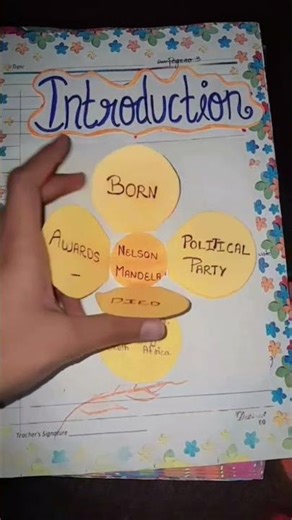 Page no. 3
Introduction
BORN
AWARDS
NELSON
MANDELA
POLITICAL
PARTY
DIED
Africa
Teacher's Signature
10